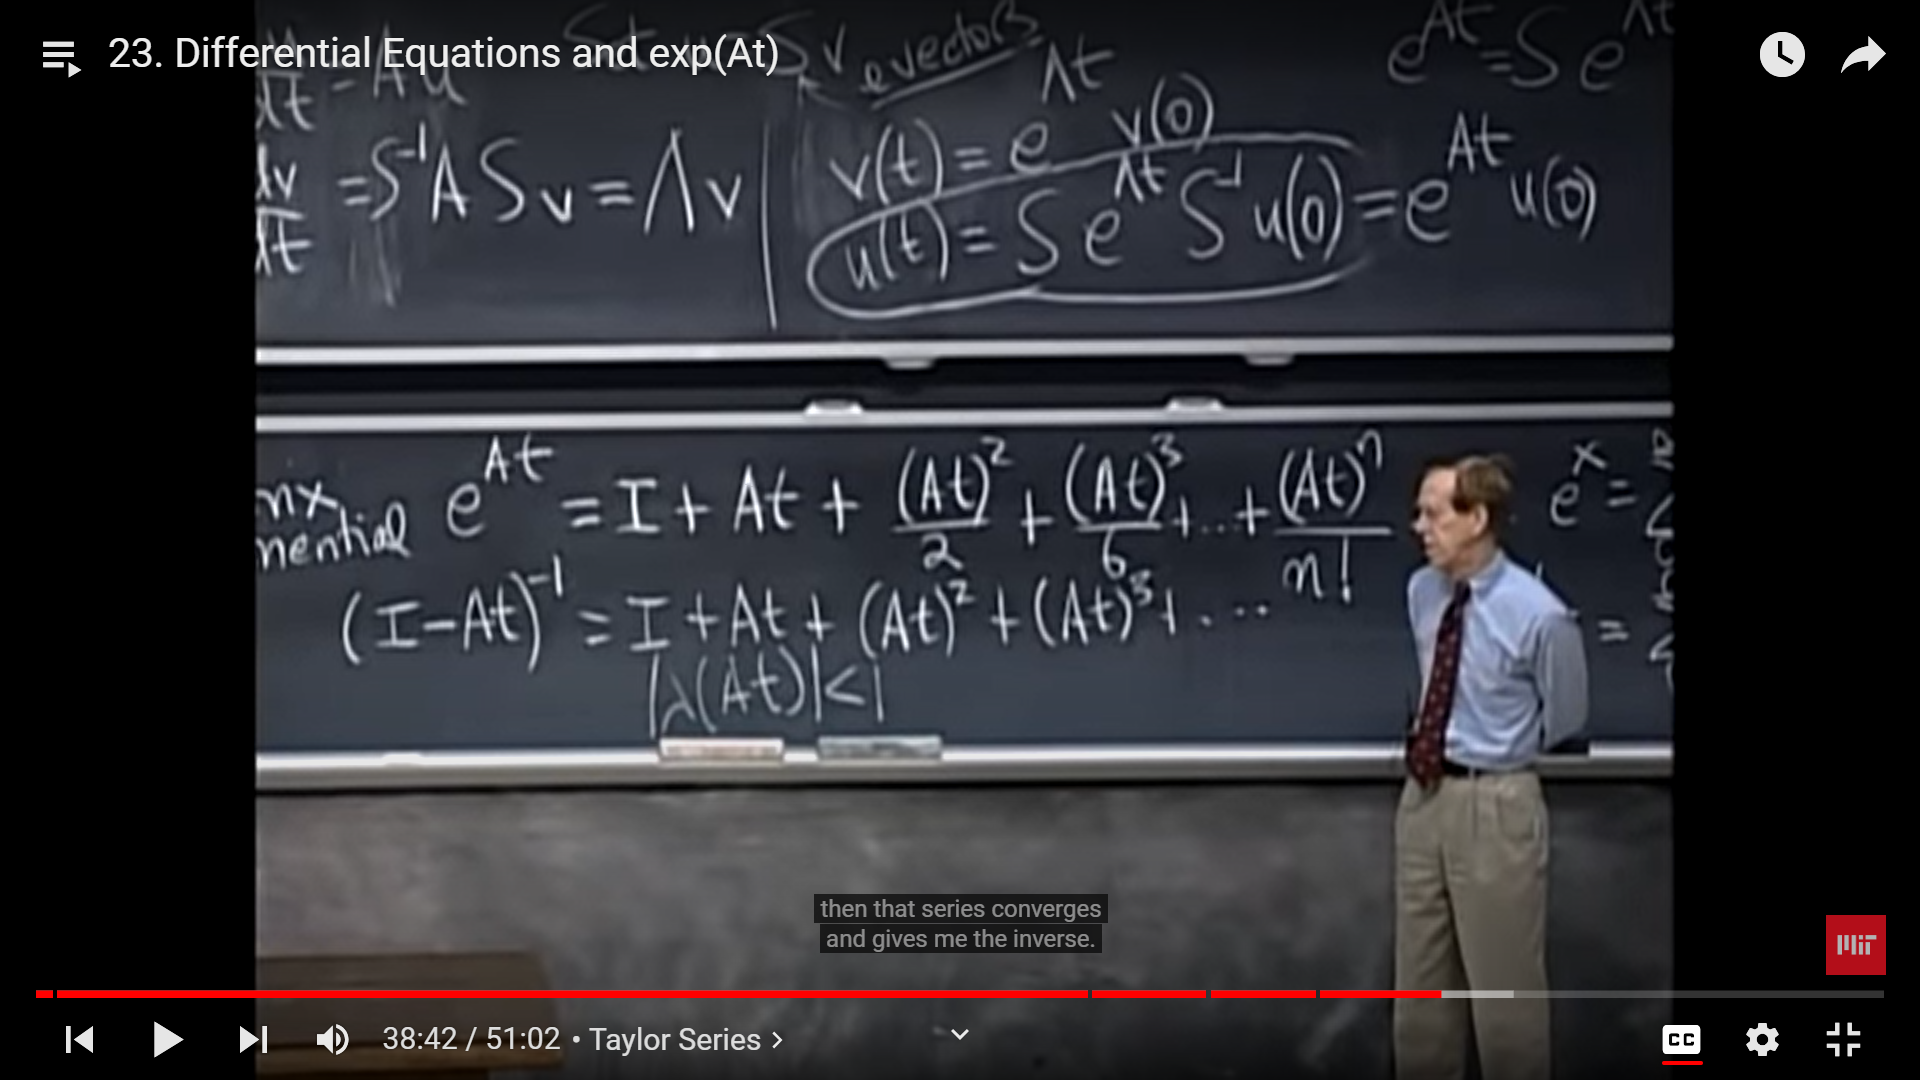 23. Differential Equations and exp(At)
evectors
e^{At} = S e^{Λt}
dt = Au
dv/dt = S⁻¹ A S v = Λ v
v(t) = e^{Λt} v(0)
u(t) = S e^{Λt} S⁻¹ u(0) = e^{At} u(0)
e^{At} = I + At + (At)²/2 + (At)³/6 + .. + (At)ⁿ/n!
e^x =
(I - At)⁻¹ = I + At + (At)² + (At)³ + . ...
=
|λ(At)| < 1
then that series converges
and gives me the inverse.
MIT
38:42 / 51:02 • Taylor Series >
CC